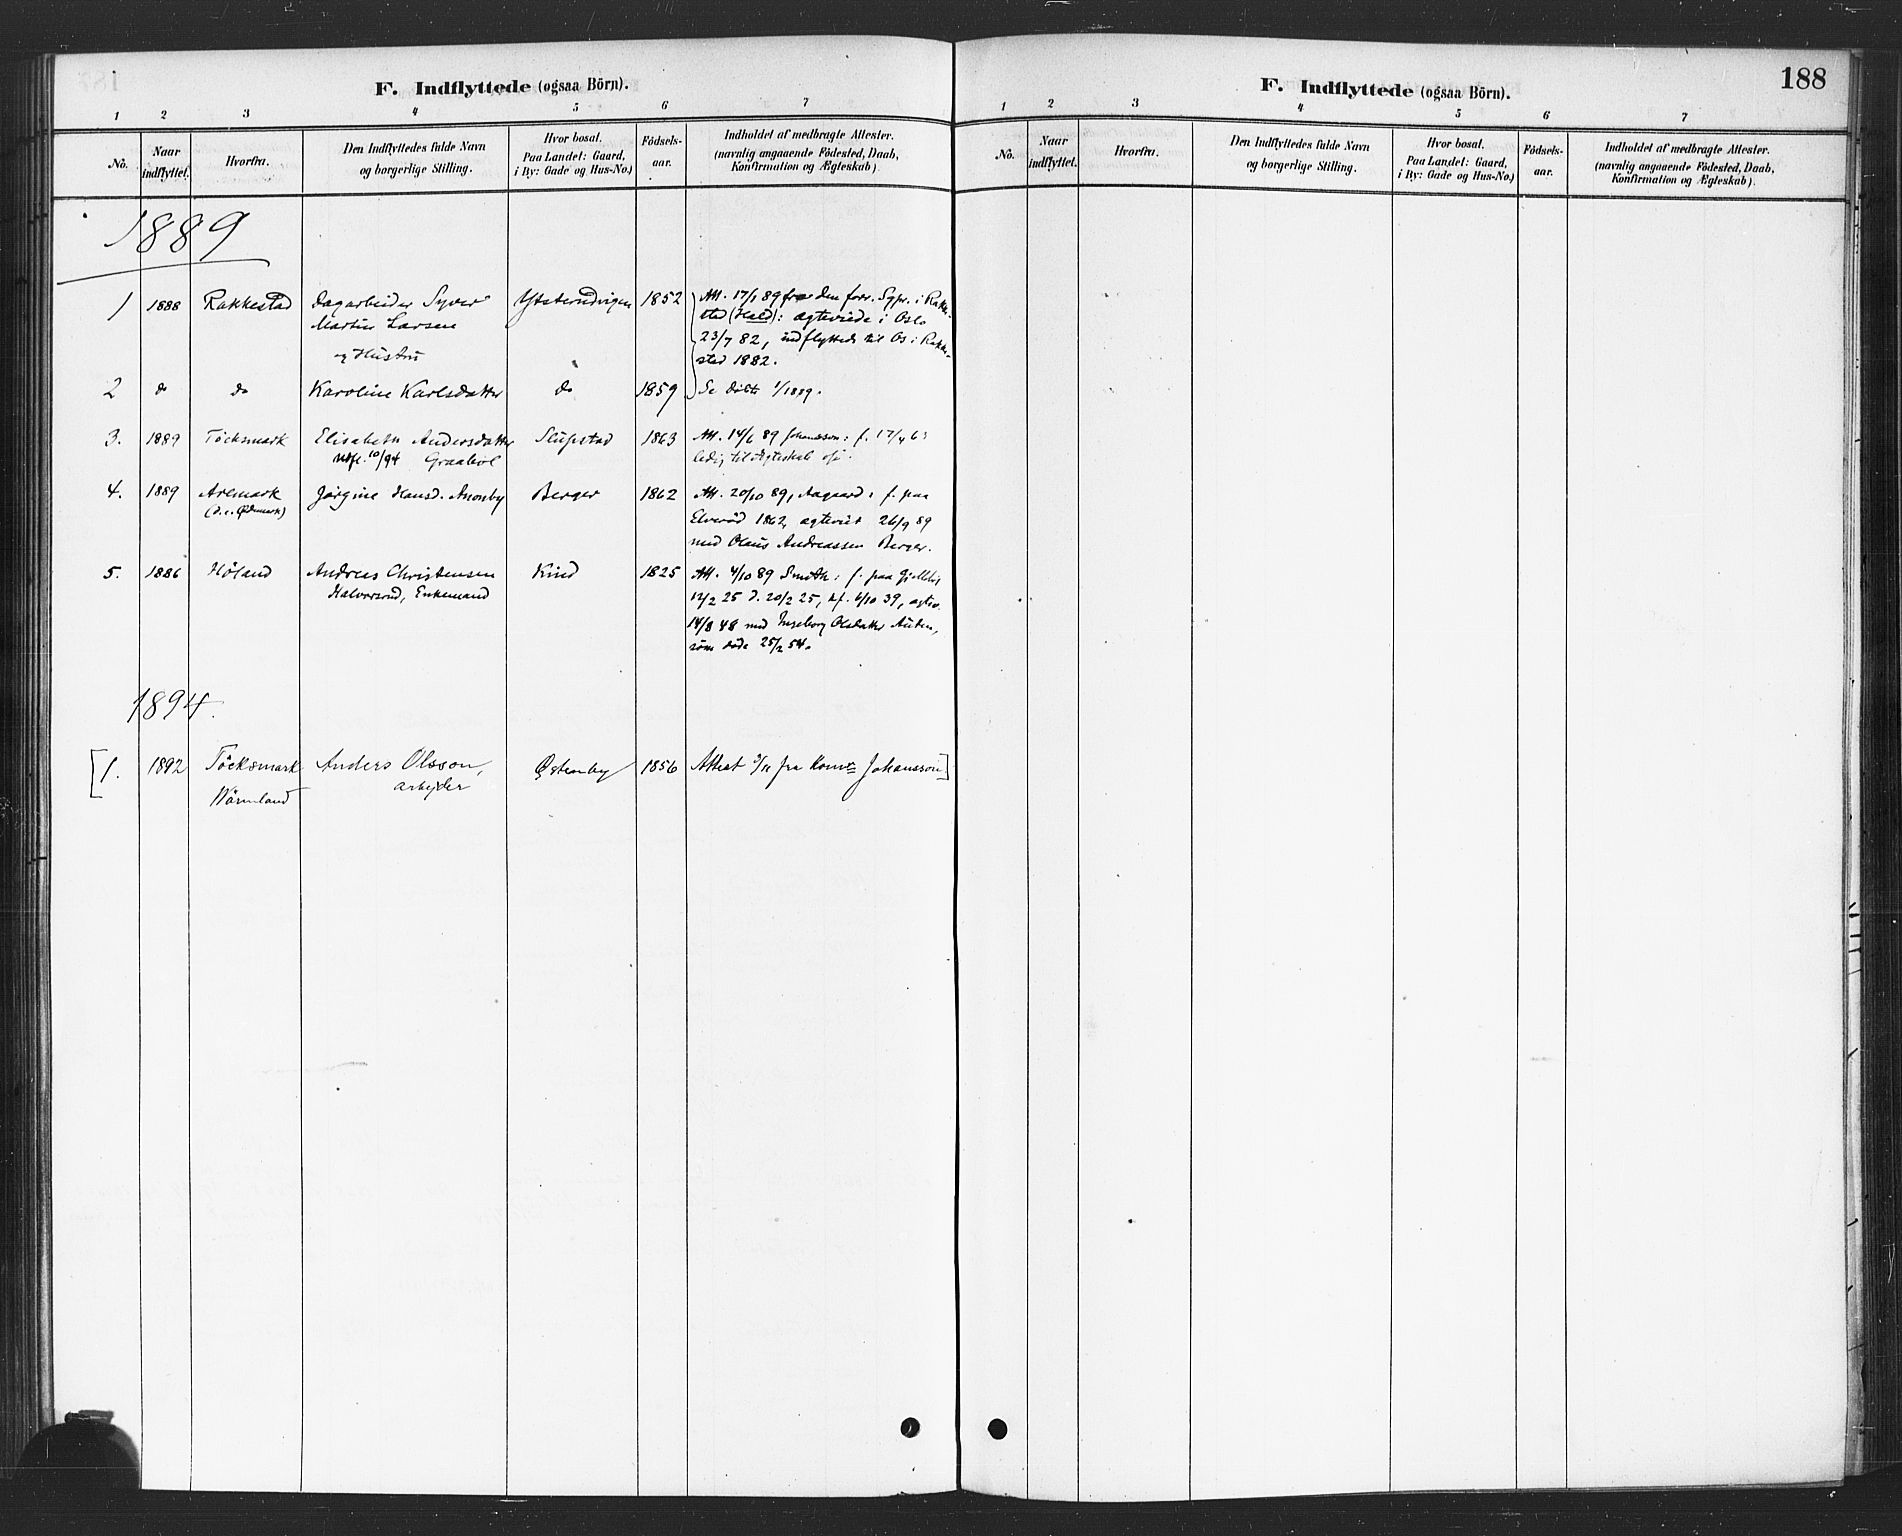 188
F. Indflyttede (ogsaa Börn).
1 2 3 4 5 6 7
No. Naar indflyttet. Hvorfra. Den Indflyttedes fulde Navn og borgerlige Stilling. Hvor bosat. Paa Landet: Gaard, i By: Gade og Hus-No.) Födsels-aar. Indholdet af medbragte Attester. (navnlig angaaende Födested, Daab, Konfirmation og Ægteskab)
1889
1 1888 Rakkestad Dagarbeider Syver Ytterudvigen 1852 Att. 17/1 89 fra den forr. Sgpr. i Rakke-
Martin Larsen stad (Hald): ægteviede i Oslo
og Hustru 23/7 82, indflyttede til Os i Rakke-
stad 1882.
2 do do Karoline Karlsdatter do 1859 Se 1/1889.
3. 1889 Töcksmark Elisabeth Andersdatter Slupstad 1863 Att. 14/6 89 Johansson: f. 17/4 63
Udfl. 10/94 Graabøl ledig til Ægteskab
4. 1889 Aremark Jørgine Hansd. Berger 1862 Att. 20/10 89, Aagaard: f. paa
(d.e. Ødemark) Elverød 1862, ægteviet 26/9 89
med Olaus Andreassen Berger.
5. 1886 Høland Andreas Christensen Kind 1825 Att. 4/10 89 Smith: f. paa
Halvorsrud, Enkemand 12/2 25 d. 20/2 25, kf. 6/10 39, ægtev.
14/8 48 med Ingeborg Olsdatter
som døde 25/2 54.
1894.
[1. 1892 Töcksmark Anders Olsson, Østenby 1856 Attest 3/11 fra Komr Johansson]
Wärmland arbejder
F. Indflyttede (ogsaa Börn).
1 2 3 4 5 6 7
No. Naar indflyttet. Hvorfra. Den Indflyttedes fulde Navn og borgerlige Stilling. Hvor bosat. Paa Landet: Gaard, i By: Gade og Hus-No.) Födsels-aar. Indholdet af medbragte Attester. (navnlig angaaende Födested, Daab, Konfirmation og Ægteskab)